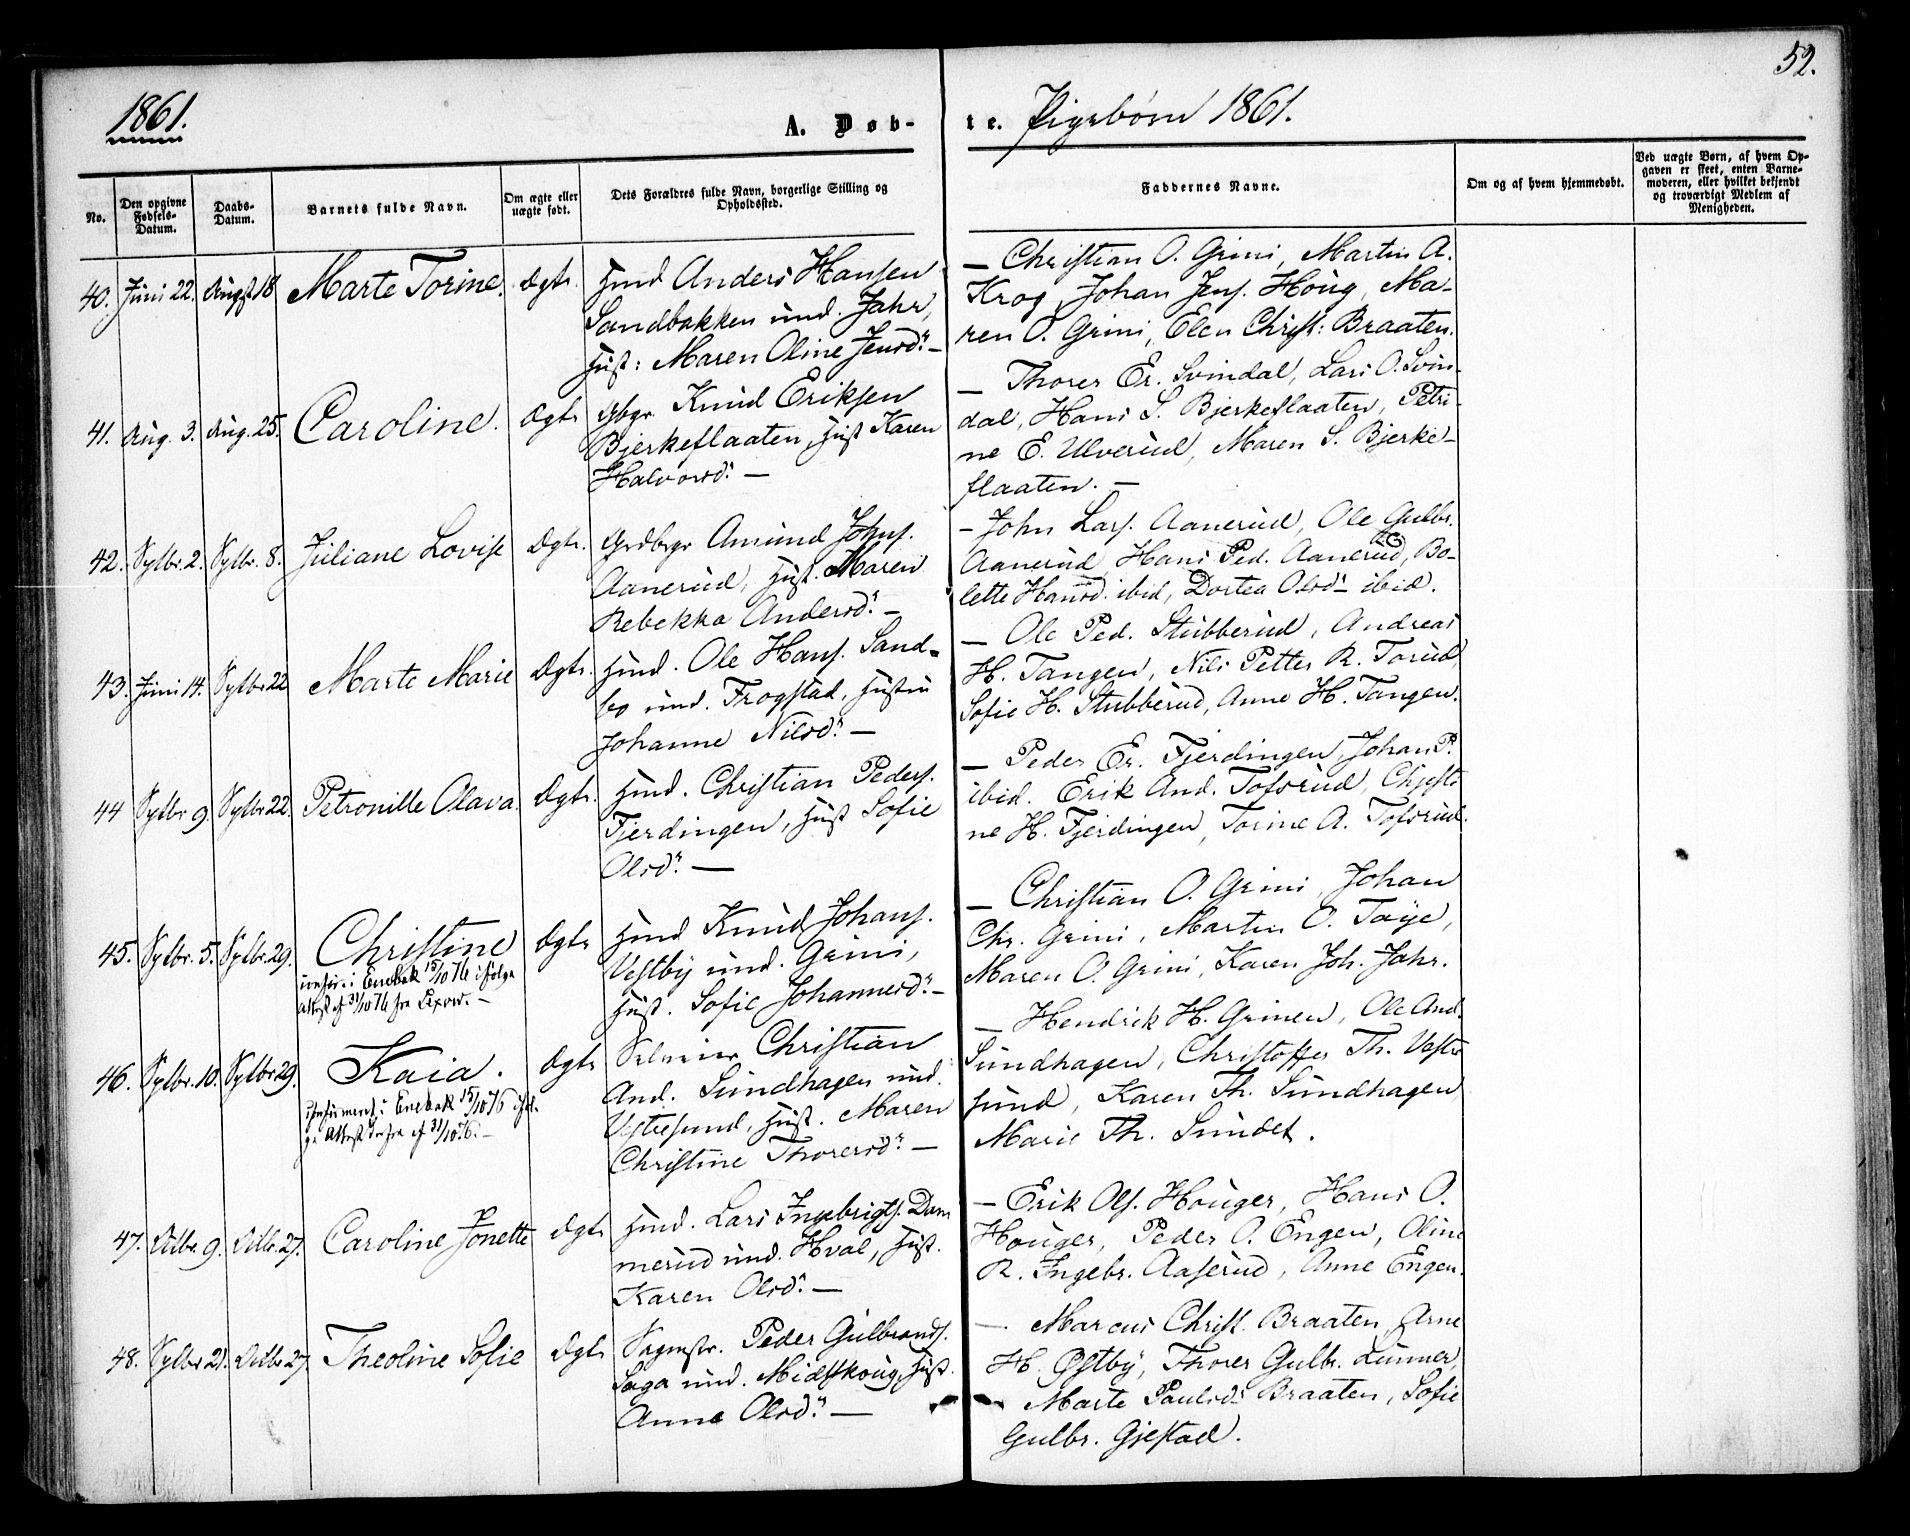 52.
1861.
A. Døb-
te. Pigebørn 1861.
No.
Den opgivne Fødsels-Datum.
Daabs-Datum.
Barnets fulde Navn.
Om ægte eller uægte født.
Dets Forældres fulde Navn, borgerlige Stilling og Opholdssted.
Faddernes Navne.
Om og af hvem hjemmedøbt.
Ved uægte Børn, af hvem Op-
gaven er skeet, enten Barne-
moderen, eller hvilket bekjendt
og troværdigt Medlem af
Menigheden.
40. Juni 22. Augst 18 Marte Torine. Ægte. Hmd Anders Hansen
Sandbakken und. Jahr,
Hust: Maren Oline Jensd:r —
— Christian O. Grini, Martin A.
Krog, Johan Jens. Houg, Ma-
ren O. Grini, Elen Christ: Braaten.
41. Aug. 3. Aug. 25. Caroline. Ægte Gbgr Knud Eriksen
Bjerkeflaaten, Hust Karen
Halvorsd:r —
— Thorer Er. Svindal, Lars O. Svin-
dal, Hans S. Bjerkeflaaten, Petri-
ne E. Ulverud, Maren S. Bjerke-
flaaten. —
42. Sptbr. 2. Sptbr. 8. Juliane Lovise Ægte. Grdbrgr Amund Johns.
Aanerud, Hust. Maren
Rebekka Andersd:r —
— John Lars. Aanerud, Ole Gulbr.
Aanerud, Hans Ped. Aanerud, Bo-
lette Hansd. ibid, Dortea Olsd:r ibid.
43. Juni 14. Sptbr 22 Marte Marie Ægte. Hmd. Ole Hans. Sand-
bo und. Frogstad, Hustru
Johanne Nilsd:r —
— Ole Ped. Stubberud, Andreas
H. Tangen, Nils Petter R. Torud,
Sofie H. Stubberud, Anne H. Tangen.
44 Sptbr 9. Sptbr 22. Petronille Olava. Ægte. Hmd. Christian Peders.
Fjerdingen, Hust Sofie
Olsd:r —
— Peder Er. Fjerdingen, Johan P.
ibid. Erik And. Tofsrud, Christi-
ne H. Fjerdingen, Torine A. Tofsrud.
45. Sptbr. 5. Sptbr. 29. Christine Ægte Hmd Knud Johans.
Vestby und. Grini,
Hust. Sofie Johannesd:r —
Enebak 15/10 76 ifølge
Attest af 31/10 76 fra
— Christian O. Grini, Johan
Chr. Grini, Martin O. Taije,
Maren O. Grini, Karen Joh. Jahr.
46. Sptbr. 10. Sptbr 29. Kaia. Ægte Selveier Christian
And. Sundhagen und.
Vestresund, Hust. Maren
Christine Thoresd:r —
Confirmeret i Enebak 15/10 76 iføl-
ge Attest derfra af 31/10 76. —
— Hendrik H. Grinen, Ole And.
Sundhagen, Christoffer Th. Vestre
sund, Karen Th. Sundhagen
Marie Th. Sundet.
47. Octbr. 9. Octbr. 27. Caroline Jonette Ægte Hmd. Lars Ingebrigts. Dam
merud und. Hval, Hust.
Karen Olsd:r —
— Erik Ols. Houger, Hans O.
Houger, Peder O. Engen, Oline
R. Ingebr. Aaserud, Anne Engen.
48. Sptbr 21. Octbr 27. Theoline Sofie Ægte Sagmstr. Peder Gulbrands.
Saga und. Midtskoug, Hust.
Anne Olsd:r —
— Marcus Christ. Braaten, Arne
H. Østby, Thorer Gulbr. Lunner,
Marte Paulsd:r Braaten, Sofie
Gulbr. Gjestad.